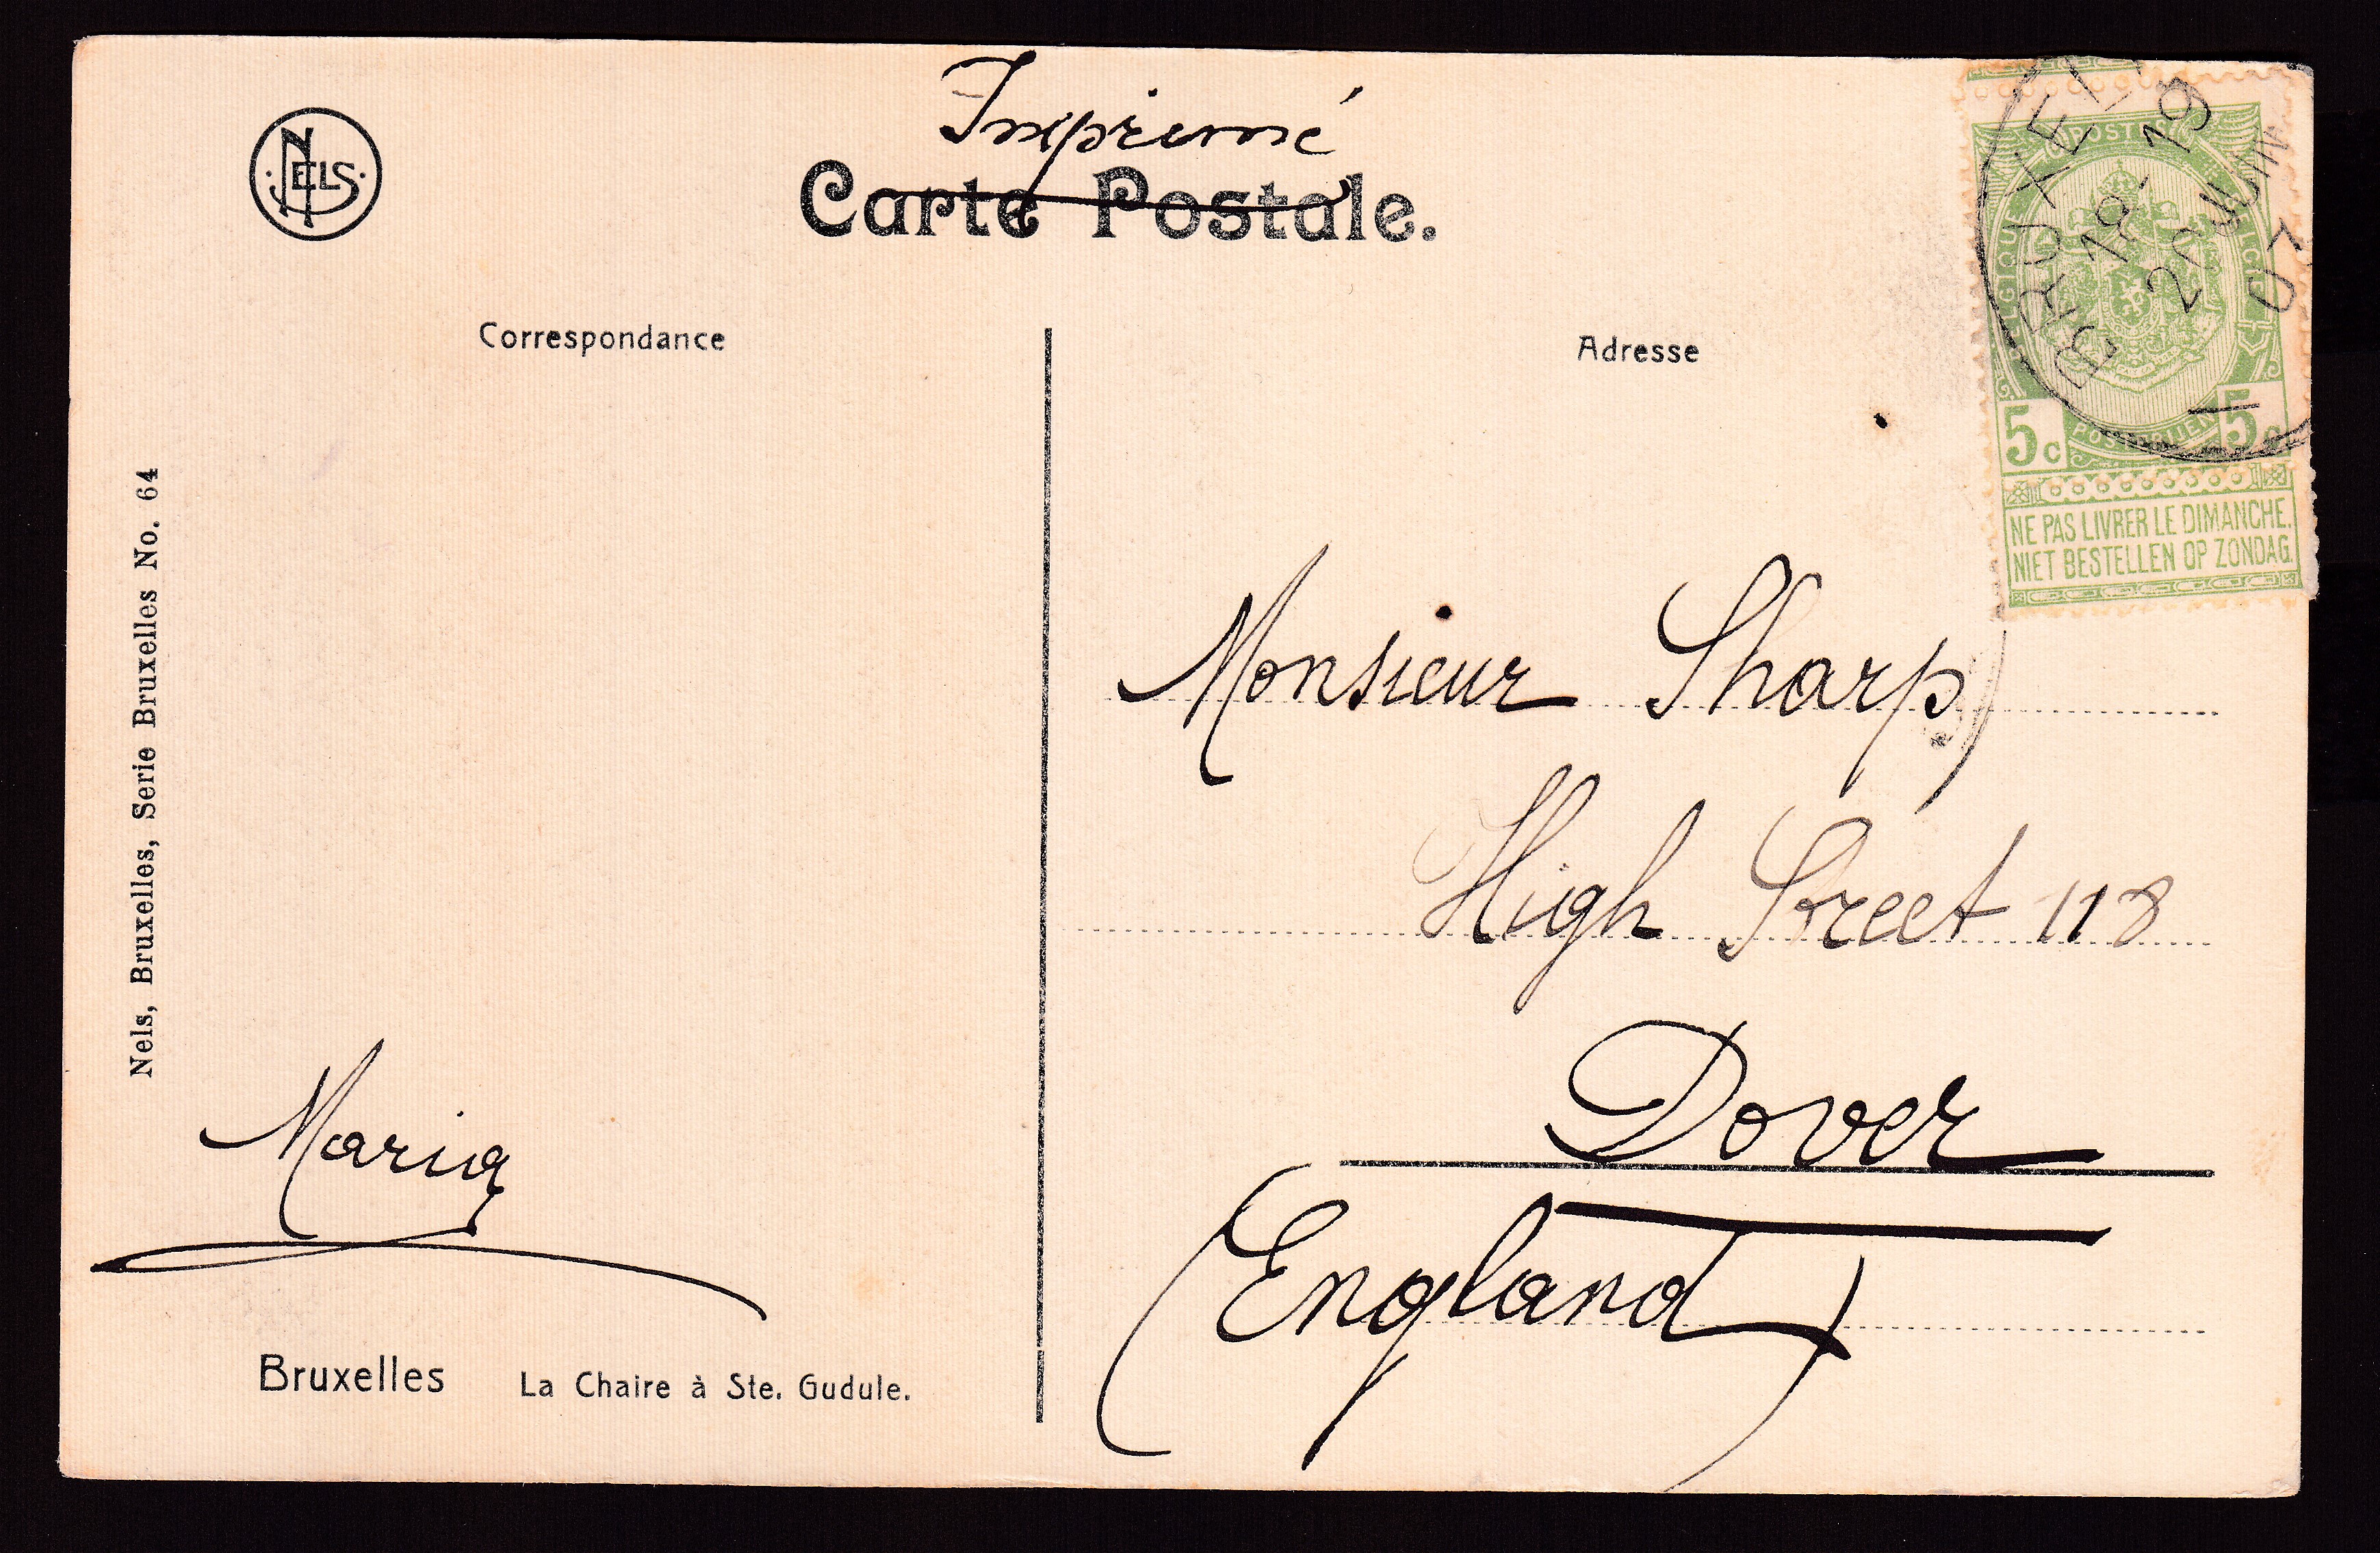 Imprimé
NELS
Carte Postale.
Correspondance
Adresse
BRUXEL
18-19
20 JUIN
07
POSTES
BELGIQUE
BELGIË
5c 5c
POSTERIJEN
NE PAS LIVRER LE DIMANCHE.
NIET BESTELLEN OP ZONDAG.
Nels, Bruxelles, Serie Bruxelles No. 64
Monsieur Sharp
High Street 118
Dover
(England)
Maria
Bruxelles La Chaire à Ste. Gudule.